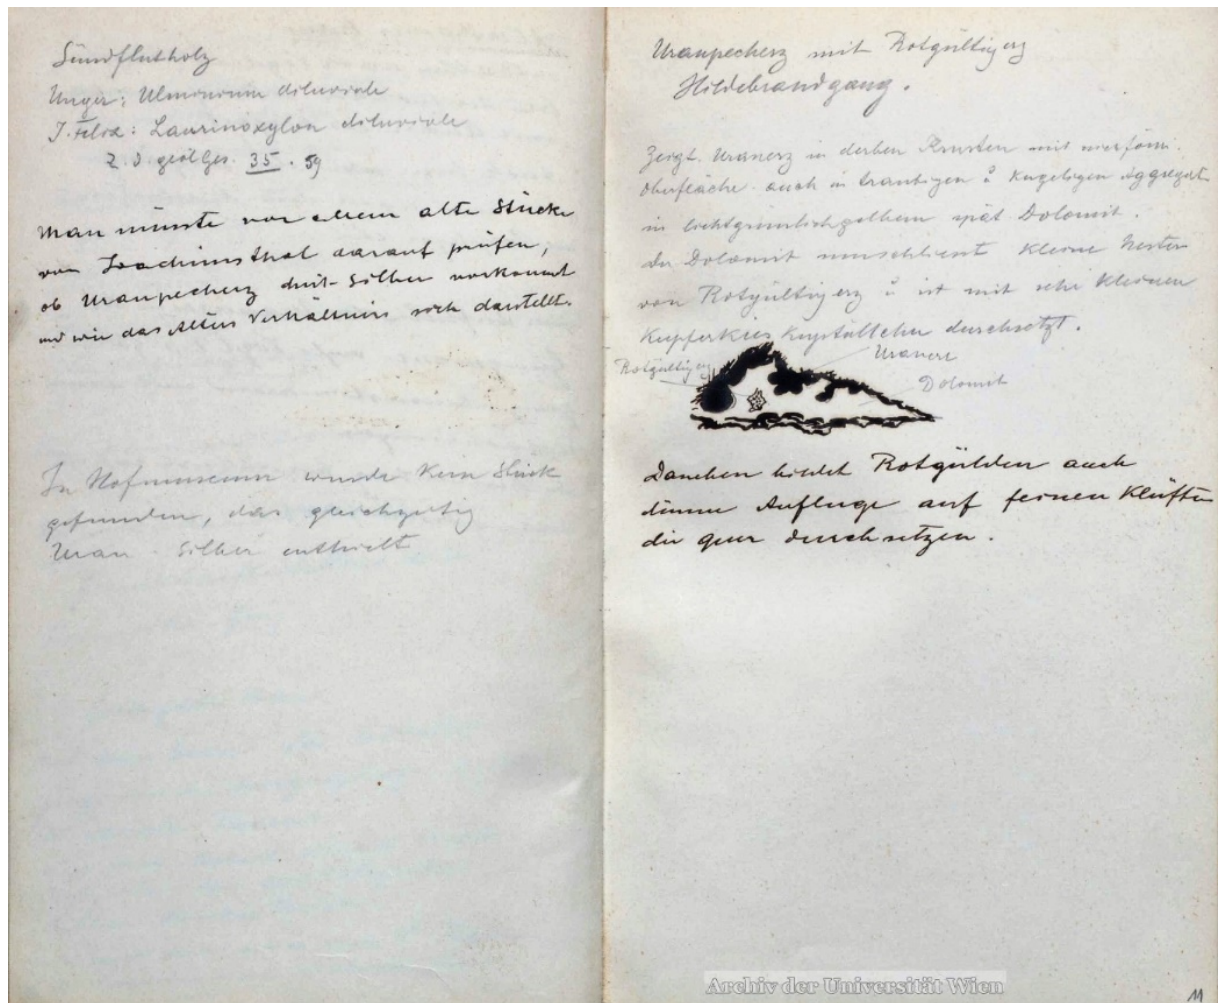 Sündflutholz
Unger: Ulmonium diluviale
J. Felix: Laurinoxylon diluviale
Z. d. geol Ges. 35. 59
Man müsste vor allem alte Stücke
von Joachimsthal darauf prüfen,
ob Uranpecherz mit Silber vorkommt
und wie das Alters Verhältnis sich darstellt.
In Hofmuseum wurde kein Stück
gefunden, das gleichzeitig
Uran Silber enthielt
Uranpecherz mit Rotgültigerz
Hildebrandgang.
Zeigt Uranerz in derben Krusten mit nierförm.
Oberfläche auch in traubigen u kugeligen Aggregat
in lichtgrünlichgelbem spät. Dolomit.
der Dolomit umschliesst kleine Nester
von Rotgültigerz u ist mit sehr kleinen
Kupferkies Kryställchen durchsetzt.
Rotgültigerz
Uranerz
Dolomit
Daneben bildet Rotgülden auch
dünne Anfluge auf feinen Klüften
die quer durchsetzen.
Archiv der Universität Wien
11